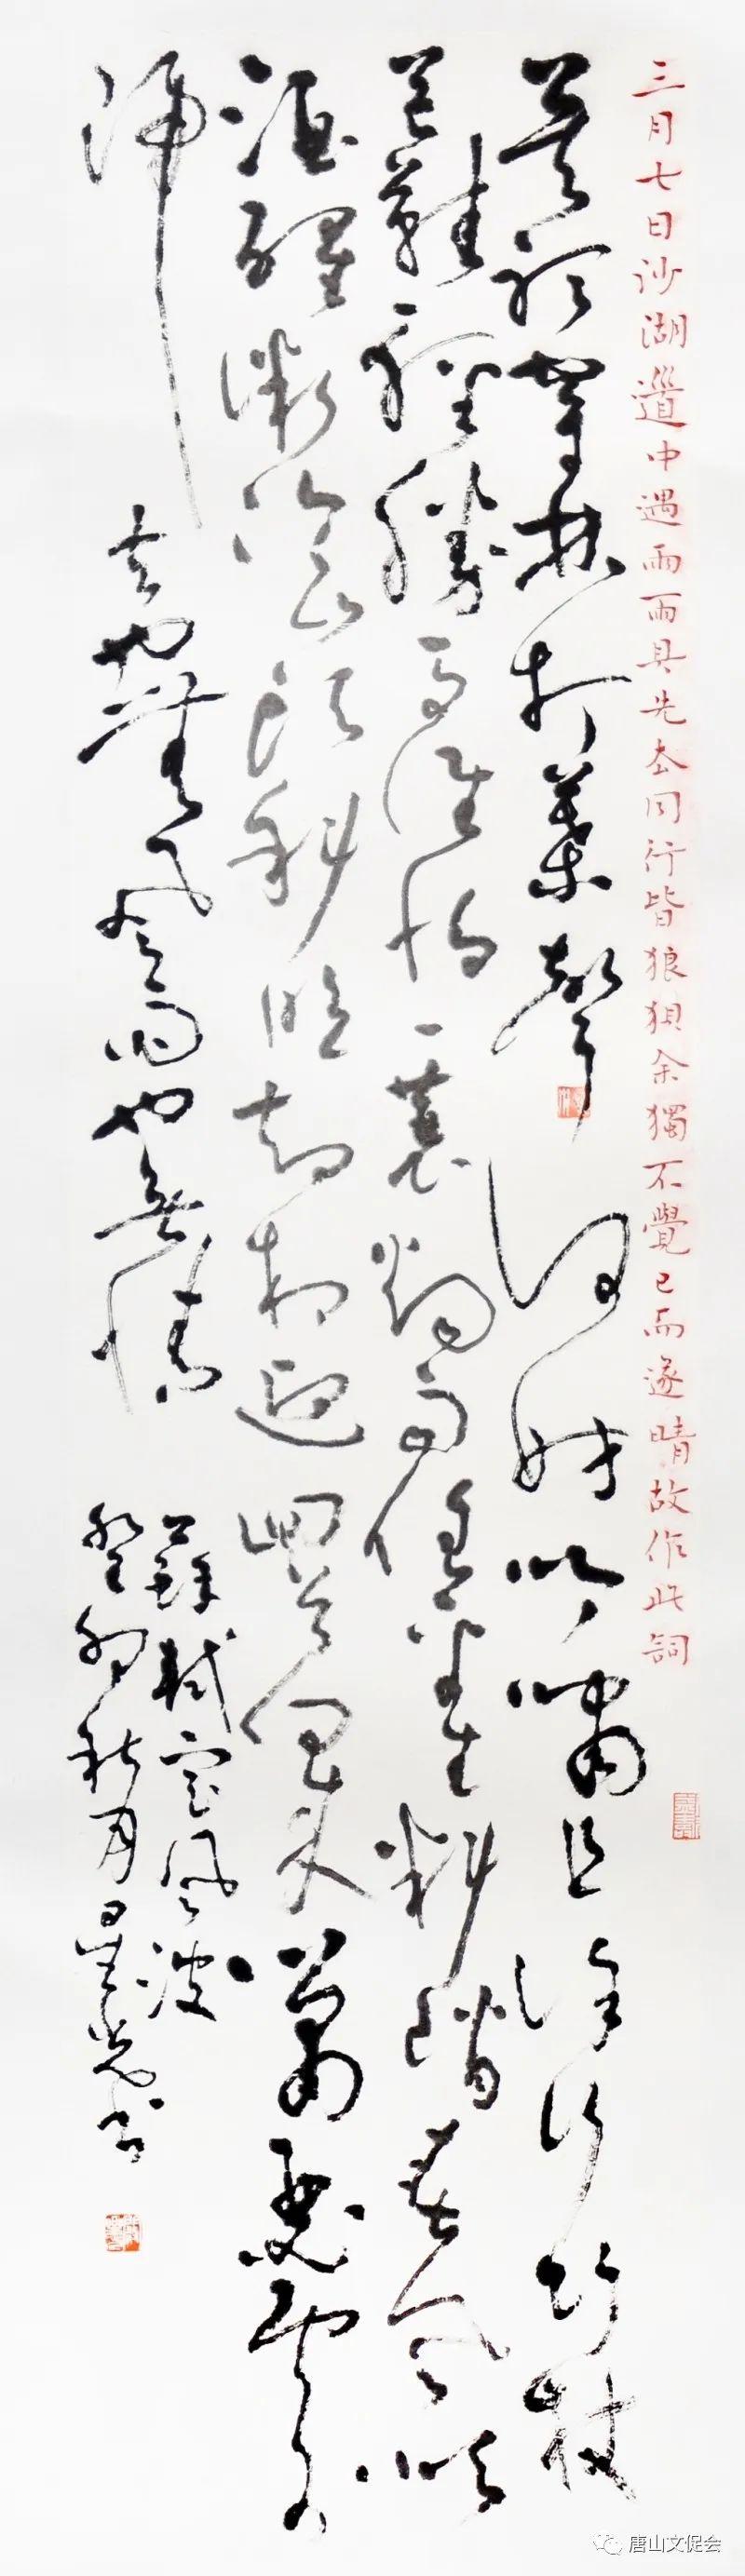 三月七日沙湖道中遇雨雨具先去同行皆狼狽余獨不覺已而遂晴故作此詞
莫聽穿林打葉聲何妨吟嘯且徐行竹杖
芒鞋輕勝馬誰怕一蓑煙雨任平生料峭春風吹
酒醒微冷山頭斜照却相迎回首向來蕭瑟處
歸去也無風雨也無晴
蘇軾定風波
癸卯秋月星光書
唐山文促会